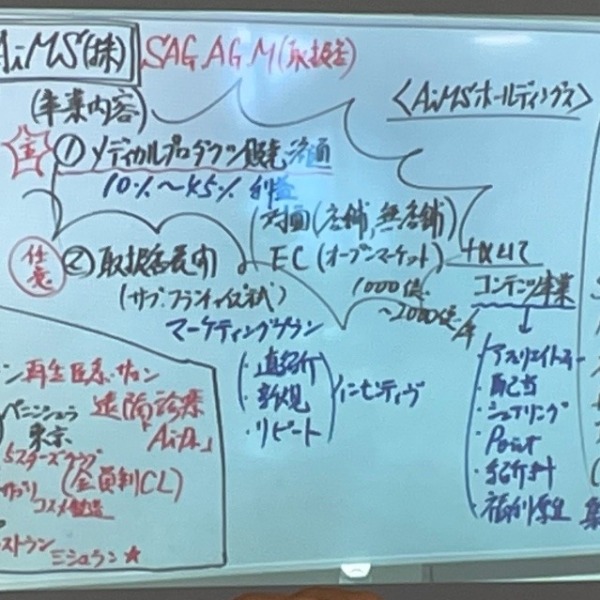 AiMS(株) SAG, AGM(取扱店)
<AiMSホールディングス>
(事業内容)
全
① メディカルプロダクツ販売
10%~45% 利益
対面(店舗,無店舗)
任意
② 取扱店
EC(オープンマーケット)
(サブ・フランチャイズ式)
1000億
~2000億/年
コンテンツ事業
マーケティングプラン
・直紹介
・新規
・リピート
インセンティヴ
アフィリエイト
・自己
・シェアリング
・Point
・紹介料
・福利厚生
ン再生医療・サロン
ペニンシュラ
東京
遠隔診療
「AiDr.」
5スターズクラブ
サプリ
(会員制CL)
コスメ
ストラン
ミシュラン★